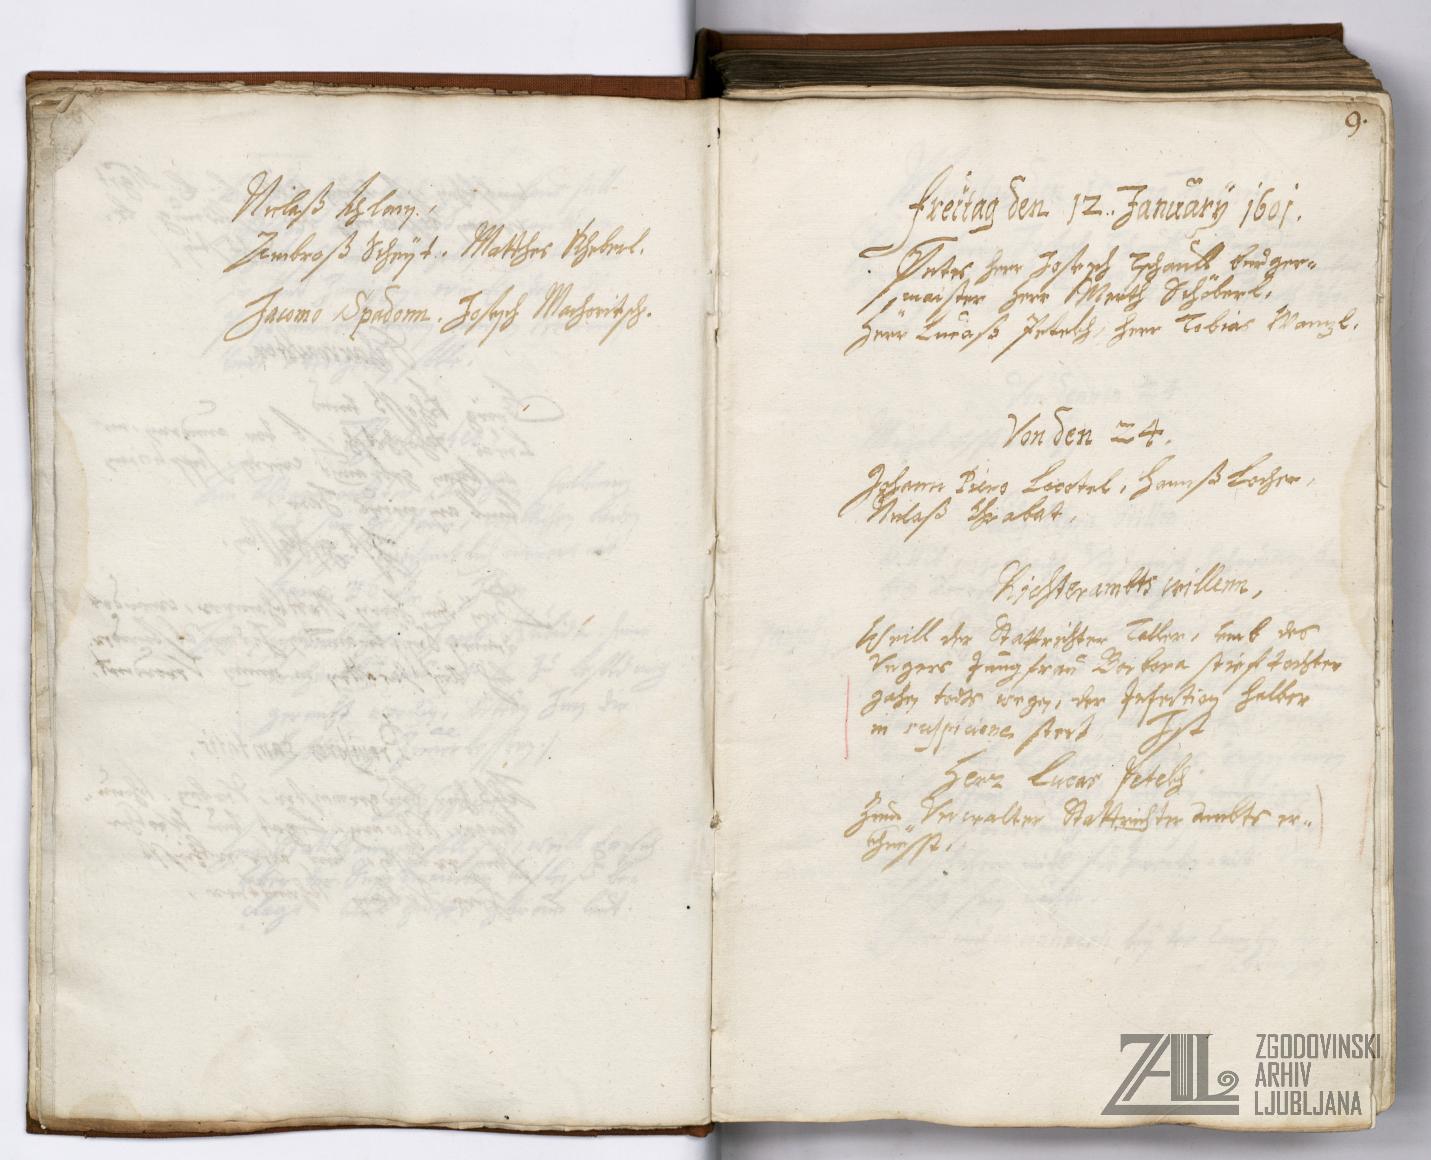 Niclaß Khlony.
Ambroß Scheyt. Matthes Kheberl.
Jacomo Spadonn. Joseph Machoritsch.
9.
Freitag den 12. January 1601.
Intes herr Joseph Tschaull burger=
maister herr Merth Schöberl,
Herr Lucaß Petelh, herr Tobias Wanzl.
Von den 24.
Johann Piero Locatel, Hannß Locher,
Niclaß Khrabat,
Richterambts willenn,
Weill der Stattrichter Taller, umb des
Ungers Jungfrau Barbara stieftochter
gahen todts wegen, der Infection halber
in suspicione stert, Ist
Herr Lucas Petelh
Zum Verwalter Stattrichter ambts er=
khiesst.
ZAL ZGODOVINSKI
ARHIV
LJUBLJANA